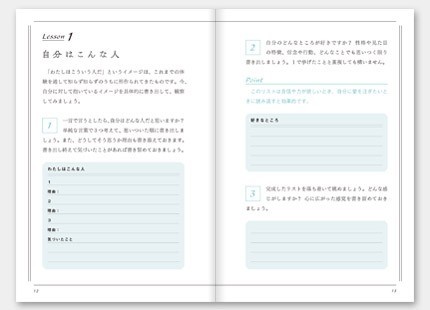 Lesson 1
自分はこんな人
「わたしはこういう人だ」というイメージは、これまでの体
験を通して知らず知らずのうちに形作られてきたものです。今、
自分に対して抱いているイメージを具体的に書き出して、観察
してみましょう。
1
一言で言うとしたら、自分はどんな人だと思いますか?
単純な言葉で3つ考えて、思いついた順に書き出しま
しょう。また、どうしてそう思うか理由も書き添えておきます。
書き出し終えて気づいたことがあれば書き留めておきましょう。
わたしはこんな人
1
理由:
2
理由:
3
理由:
気づいたこと
12
2
自分のどんなところが好きですか? 性格や見た目
の特徴、信念や行動、どんなことでも思いつく限り
書き出しましょう。1で挙げたことと重複しても構いません。
Point
このリストは自信や力が欲しいとき、自分に愛を注ぎたいと
きに読み返すと効果的です。
好きなところ
3
完成したリストを落ち着いて眺めましょう。どんな感
じがしますか? 心に広がった感覚を書き留めておき
ましょう。
13